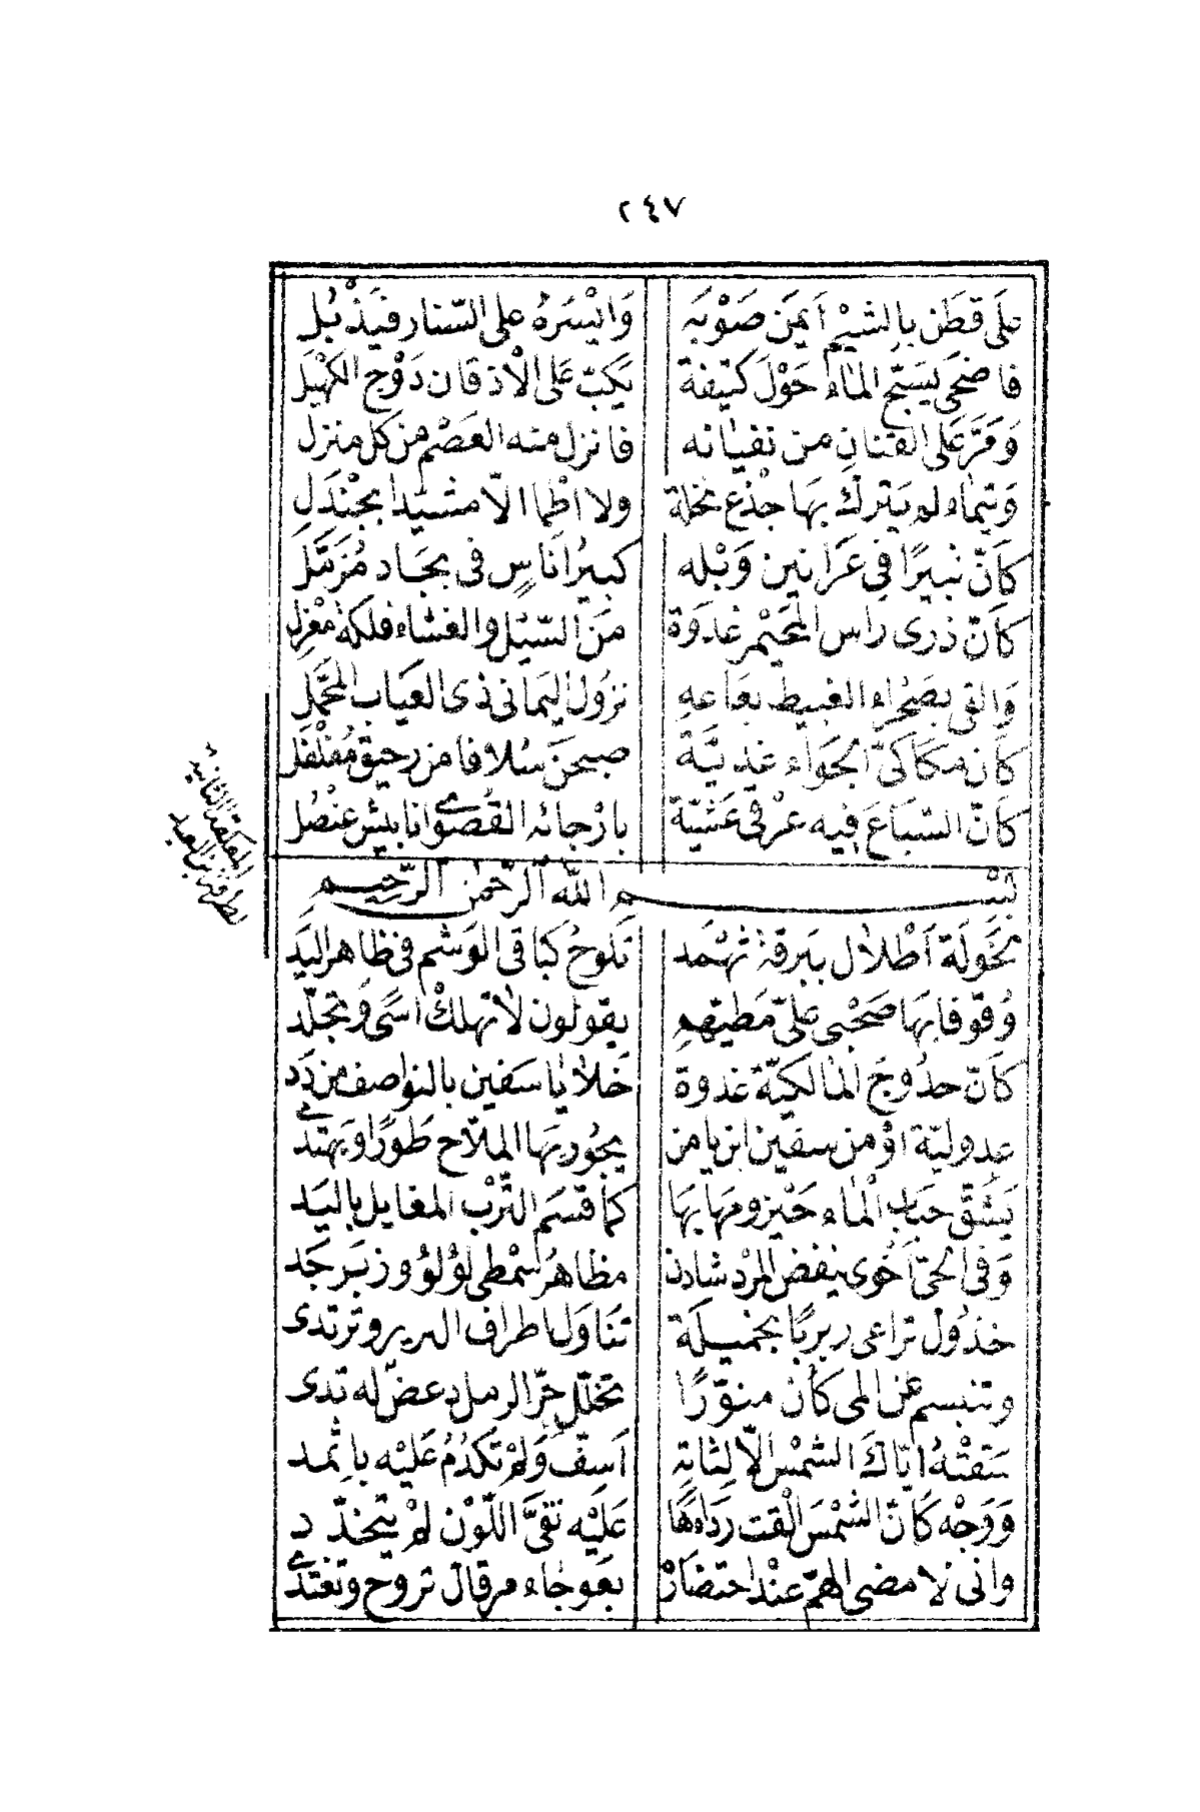 ٢٤٧
عَلَى قَطَن بالشَيْم اَيمَن صَوْبَه وَايْسَرَهُ على السّتار فيَذْبُل
فاضحَى يَسَحّ الماءَ حَوْلَ كتيفة يَكبّ عَلى الْاذقان دَوْحَ الكَهْبَل
وَمَرّ عَلى القنانِ من نفيانه فانزل منه العَصْم من كل منزل
وَتيْمَاء لم يَترك بهَا جذْع نخلة ولا اطما الّا مشيدا بجْندَلِ
كاَنّ ثبيرًا فى عَرَانين وَبْله كبيرُ اناسٍ فى بجَاد مُزَمّل
كاَنّ ذرى راس المجَيْمر غدوَة مَن السّيْل والغثاء فلكة مغْزل
وَالقى بصَحْراء الغبيط بعَاعه نزُول اليمَانى ذى العيَاب المحَمّل
كان مكاكىّ الجوَاء غديّة صبحنَ سُلافا من رحيق مُفلْفَل
كاَنّ السّباعَ فيه غرْقى عَشيّة بارْجائه القُصْوى انابيش عنْصُل
المعلقة الثانية
لطرفة بن العبد
بسْم الله الرّحمن الرّحيم
لخَوْلَة اَطْلال ببرقة ثهْمَد تلوحُ كبَاقى الوشم فى ظاهر اليَد
وُقوفا بهَا صَحْبى علىّ مَطيّهم يقولون لاتهلكْ اسًى وَتجلّد
كاَنّ حدُوجَ المالكيّة غدوة خَلايا سَفين بالنواصف من دَد
عدوليّة اوْ من سفين ابن يامن يجُور بهَا الملّاح طَورًا وَيهتدى
يَشقّ حبَابَ الْماء حَيْزومهَا بهَا كما قسَم التّرْب المفايل باليَد
وَفى الحىّ اَحْوى ينفض المرْد شادن مظاهرُ سمْطى لؤلؤ وزبَرجَد
خذول تراعى ربربًا بخميلَة تنَاوَل اطراف البرير وترتدى
وتبسم عن المى كأن منوّرًا تخلّل حرّ الرمل دعصٌ له ندى
سَقتْهُ اياَةُ الشمْس الّا لِثاتِه اَسِفّ وَلم تكدُمْ عَليْه باثمد
وَوَجْه كَاَنّ الشمْسَ القت رِدَاءهَا عَليْه نقىّ اللّوْن لمْ يتخدّد
وانى لامضى الهمّ عنْد احتضَارهْ بعَوجَاء مرقال تروح وتغتدى